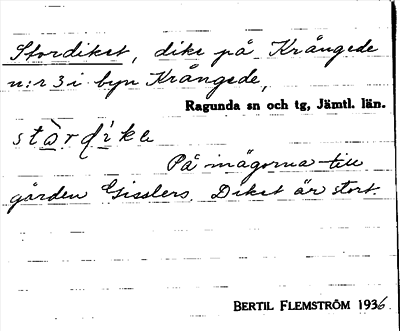 Stordiket, dike på Krångede
n:r 3 i byn Krångede,
Ragunda sn och tg, Jämtl. län.
På inägorna till
gården Gisslers. Diket är stort.
BERTIL FLEMSTRÖM 1936.